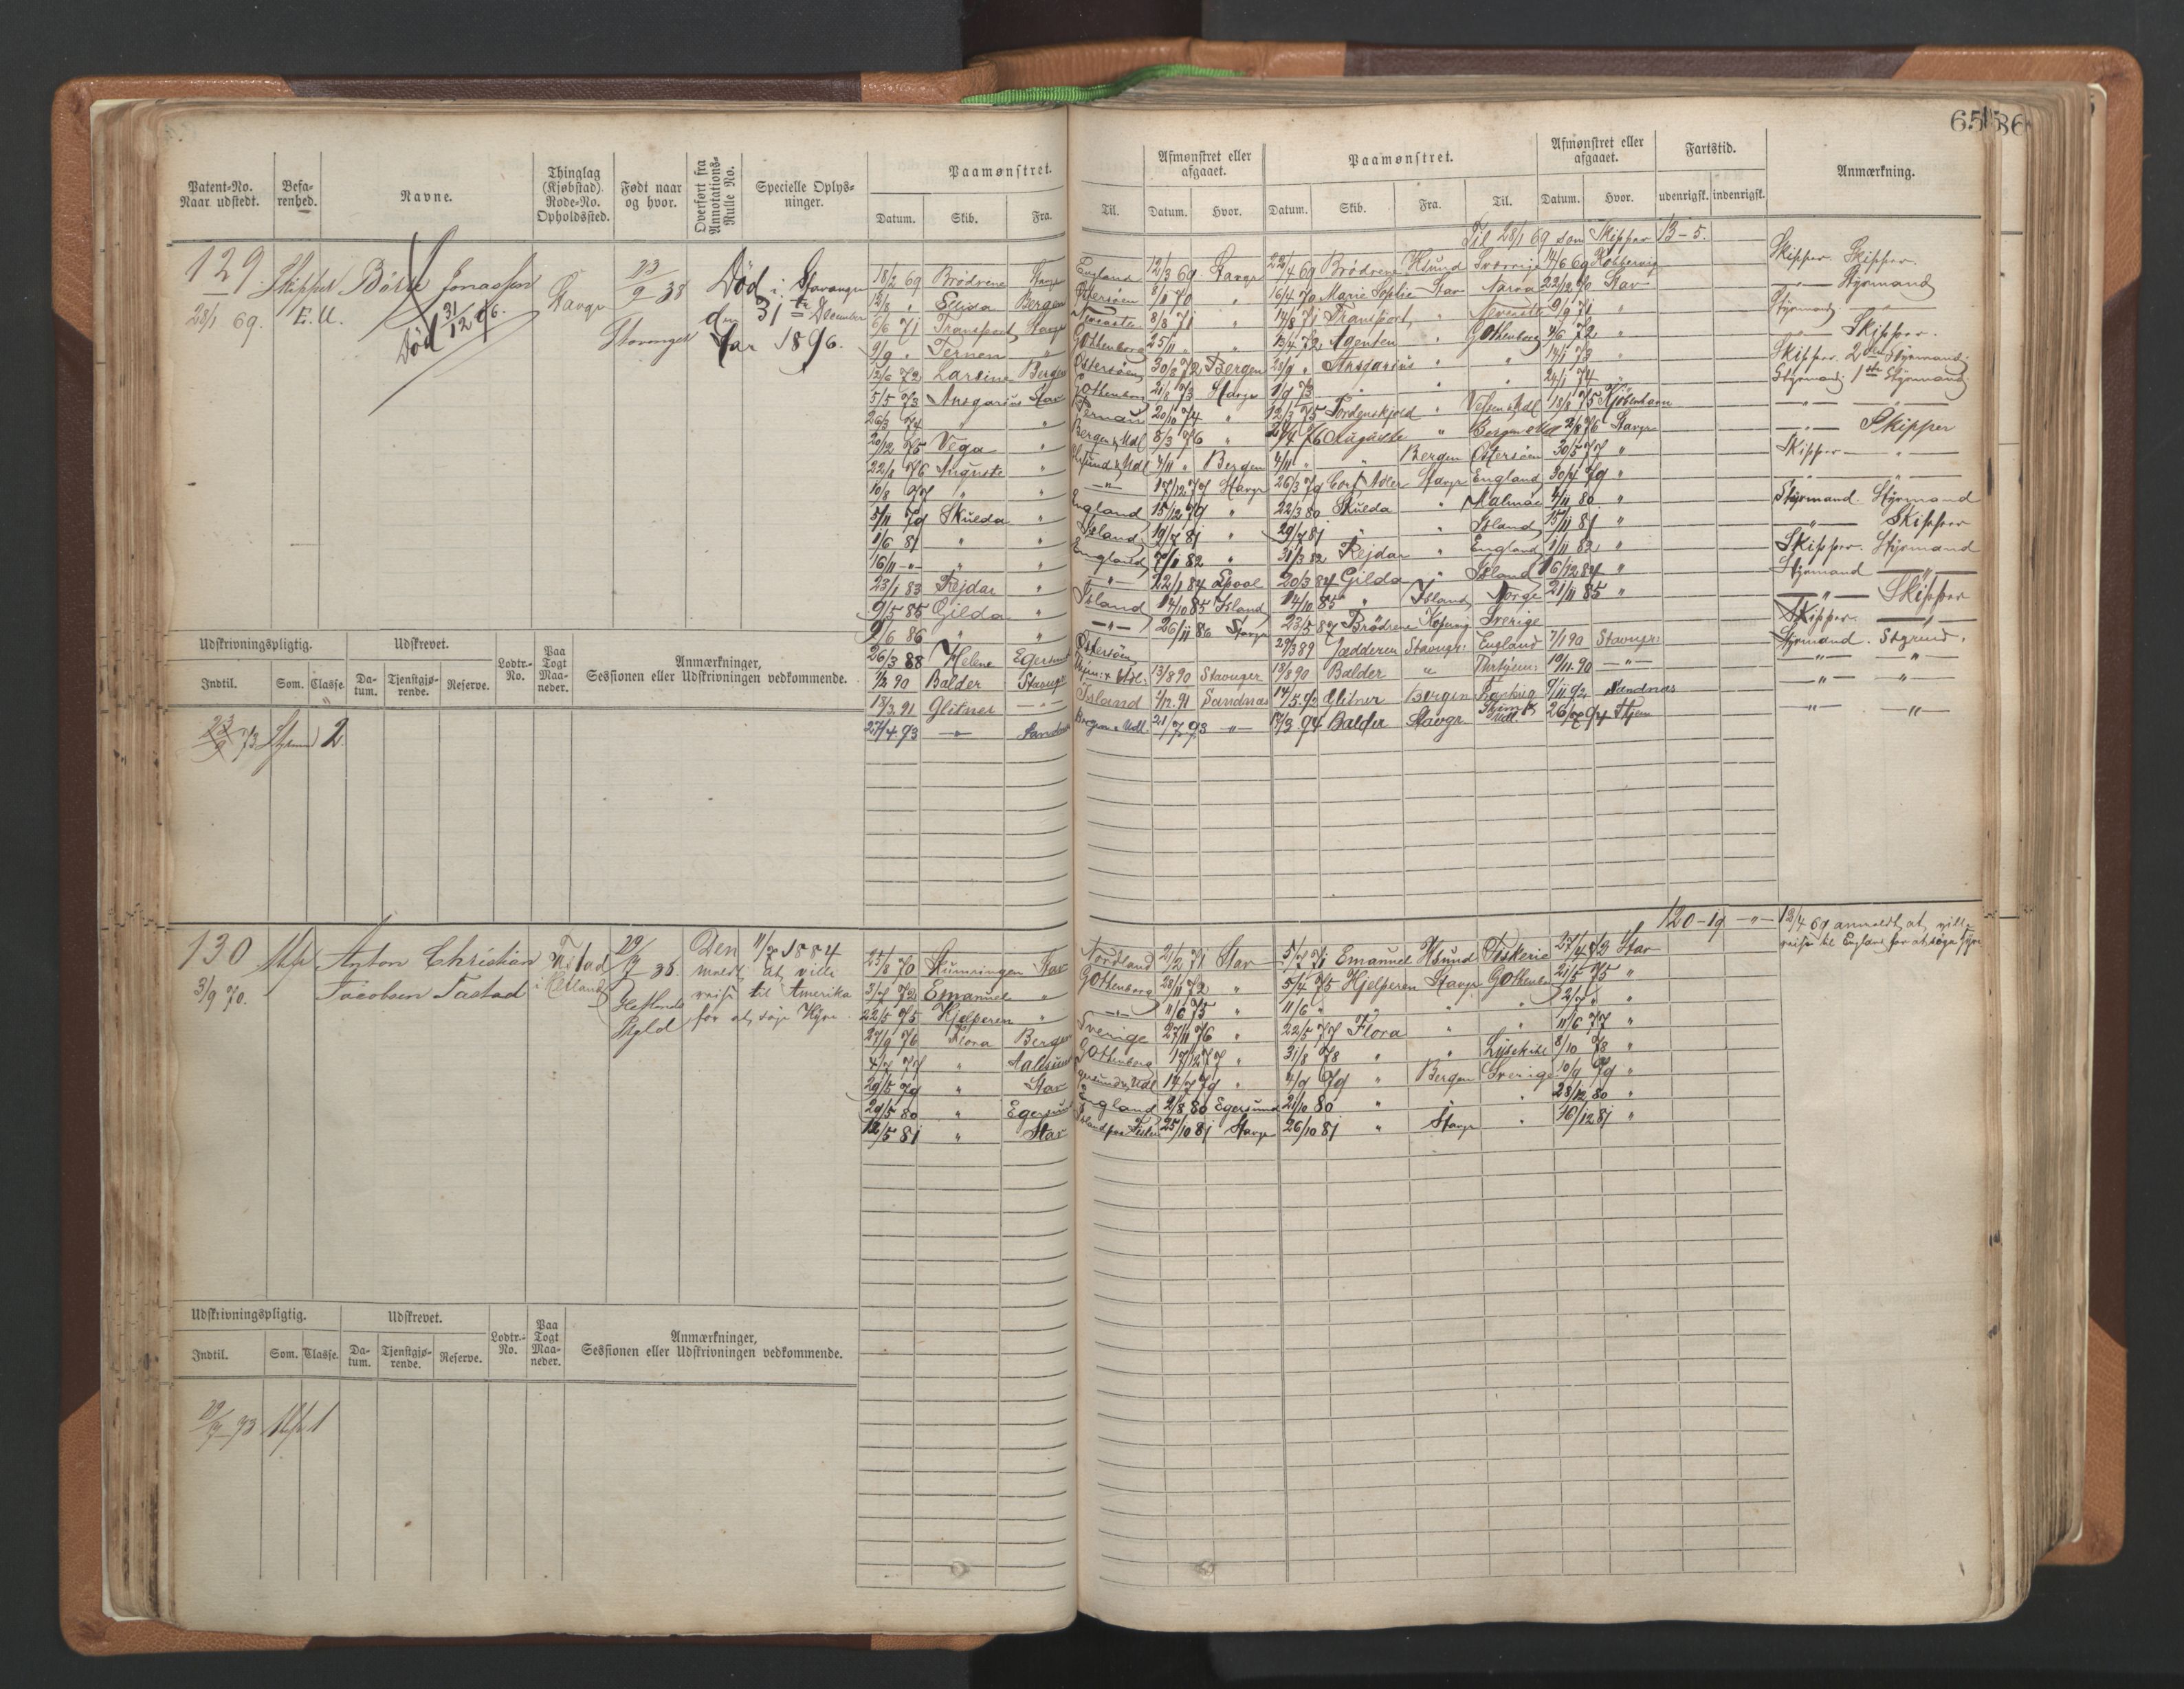 65
Patent-No. Naar udstedt.
Befarenhed.
Navne.
Thinglag (Kjøbstad). Rode-No. Opholdssted.
Født naar og hvor.
Overført fra Annotations-Rulle No.
Specielle Oplysninger.
Paamønstret.
Datum. Skib. Fra. Til.
Afmønstret eller afgaaet.
Datum. Hvor.
Paamønstret.
Datum. Skib. Fra. Til.
Afmønstret eller afgaaet.
Datum. Hvor.
Fartstid.
udenrigsk. indenrigsk.
Anmærkning.
Til 28/1 69 som Skipper 13 - 5.
129
28/1 69.
Skipper
E. U.
Jonassen
Død 31/12 96.
Stavgr
23/9 38
Stavanger
Død i Stavanger
den 31te December
Aar 1896.
18/2 69 Brødrene Stavgr England 12/3 69 Stavgr 22/4 69 Brødrene Hsund Sverrige 14/6 69 Skipper. Skipper.
Ellida Bergen Østersøen " 16/4 70 Marie Sophie Stav Narva 22/12 70 Stav — " — Styrmand
6/6 71 Transport Stavgr 8/8 71 " 14/8 71 Transport " 9/9 71 " Styrmand — " —
9/9 " Ternen " Gothenborg 25/11 " " 13/4 72 Agenten " Gothenborg 4/6 72 " — " — Skipper.
12/6 72 Larsine Bergen Østersøen 30/8 72 Bergen Ansgarius " " 14/1 73 " Skipper. 2den Styrmand
5/5 73 Ansgarius Stav Gothenborg 21/8 73 Stavgr 1/9 73 " " " 24/1 74 " Styrmand 1ste Styrmand
26/3 74 " " Pernau 20/10 74 " 12/3 75 Tordenskjold " 18/8 75 Kjøbenhavn — " — — " —
20/12 75 Vega " Bergen & Udl 8/3 76 " Auguste " Bergen Udl 2/8 76 Stavgr — " — Skipper
22/8 76 Auguste " 4/11 " Bergen 4/11 " " Bergen Østersøen 30/5 77 " Skipper — " —
10/8 77 " " — " — 17/12 77 Stavgr 26/3 79 Cort Adler Stavgr England 30/7 79 "
5/11 79 Skulda " England 15/12 79 " 22/3 80 Skulda " Malmøe 4/11 80 " Styrmand. Styrmand
1/6 81 " " Island 19/7 81 " 29/7 81 " " Island 15/11 81 " — " — Skipper
16/11 — " — " " England 7/11 82 " 31/3 82 Rejdar " England 1/11 82 " Skipper. Styrmand
23/1 83 Rejdar " — " — 22/1 84 20/3 84 Gilda " Island 16/12 84 " Styrmand — " —
9/5 85 Gilda " Island 14/10 85 Island 14/10 85 " Island Norge 21/11 85 " — " — Skipper
9/6 86 " " — " — 26/11 86 Stavgr 23/5 87 Brødrene Sverige Skipper. — " —
26/3 88 Helene Egersund Østersøen 29/3 89 Jædderen England 7/1 90 Stavngr: Styrmand. Styrmd.
1/2 90 Balder Stavngr 13/8 90 Stavanger 18/8 90 Balder " 19/11 90 — " — — " — — " —
12/3 91 Glitner — " — Island 1/12 91 Sandnæs 14/5 92 Glitner Bergen 9/11 92 Sandnæs — " — — " —
27/4 93 — " — Sandnæs Bergen & Udl. 21/7 93 — " — 17/3 94 Balder Stavgr — " — — " —
Udskrivningspligtig.
Indtil. Som. Classe.
Udskrevet.
Datum. Tjenstgjørende. Reserve.
Lodtr.-No.
Paa Togt Maaneder.
Anmærkninger, Sessionen eller Udskrivningen vedkommende.
23/9 73 Styrmand 2.
130
3/9 70.
Anton Christian
Jacobsen Tastad
Tastad
i Hetland
29/7 35.
Hetlands
Den 11/7 1884
meldt at ville
reise til Amerika
for at søge Hyre.
120 - 19 — " —
12/4 69 anmeldt at ville
reise til England for at søge Hyre
25/8 70 Stav Nordland 2/2 71 Stav 5/7 71 Emanuel Hsund Fiskerie Stav
3/7 72 Emanuel " Gothenborg 28/11 72 " 5/4 75 Hjelperen Stavgr Gothenb 21/5 75 "
22/5 75 Hjelperen " — " — 11/6 75 " 11/6 " " " " 2/7 " "
27/9 76 Flora Bergen Sverige 27/11 76 " 22/5 77 Flora " " 11/6 77 "
4/7 77 " Aalesund Gothenborg 17/12 77 " 31/8 78 " " Lysekihl 8/10 78 "
29/5 79 " Stav 14/7 79 " " Bergen Sverige 10/9 79 "
29/5 80 " Egersund England 2/8 80 Egersund 21/10 80 " " " 28/12 80 "
12/5 81 " Stav 25/10 81 Stavgr 26/10 81 " Stavgr " 10/12 81 "
Udskrivningspligtig.
Indtil. Som. Classe.
Udskrevet.
Datum. Tjenstgjørende. Reserve.
Lodtr.-No.
Paa Togt Maaneder.
Anmærkninger, Sessionen eller Udskrivningen vedkommende.
29/7 73 1